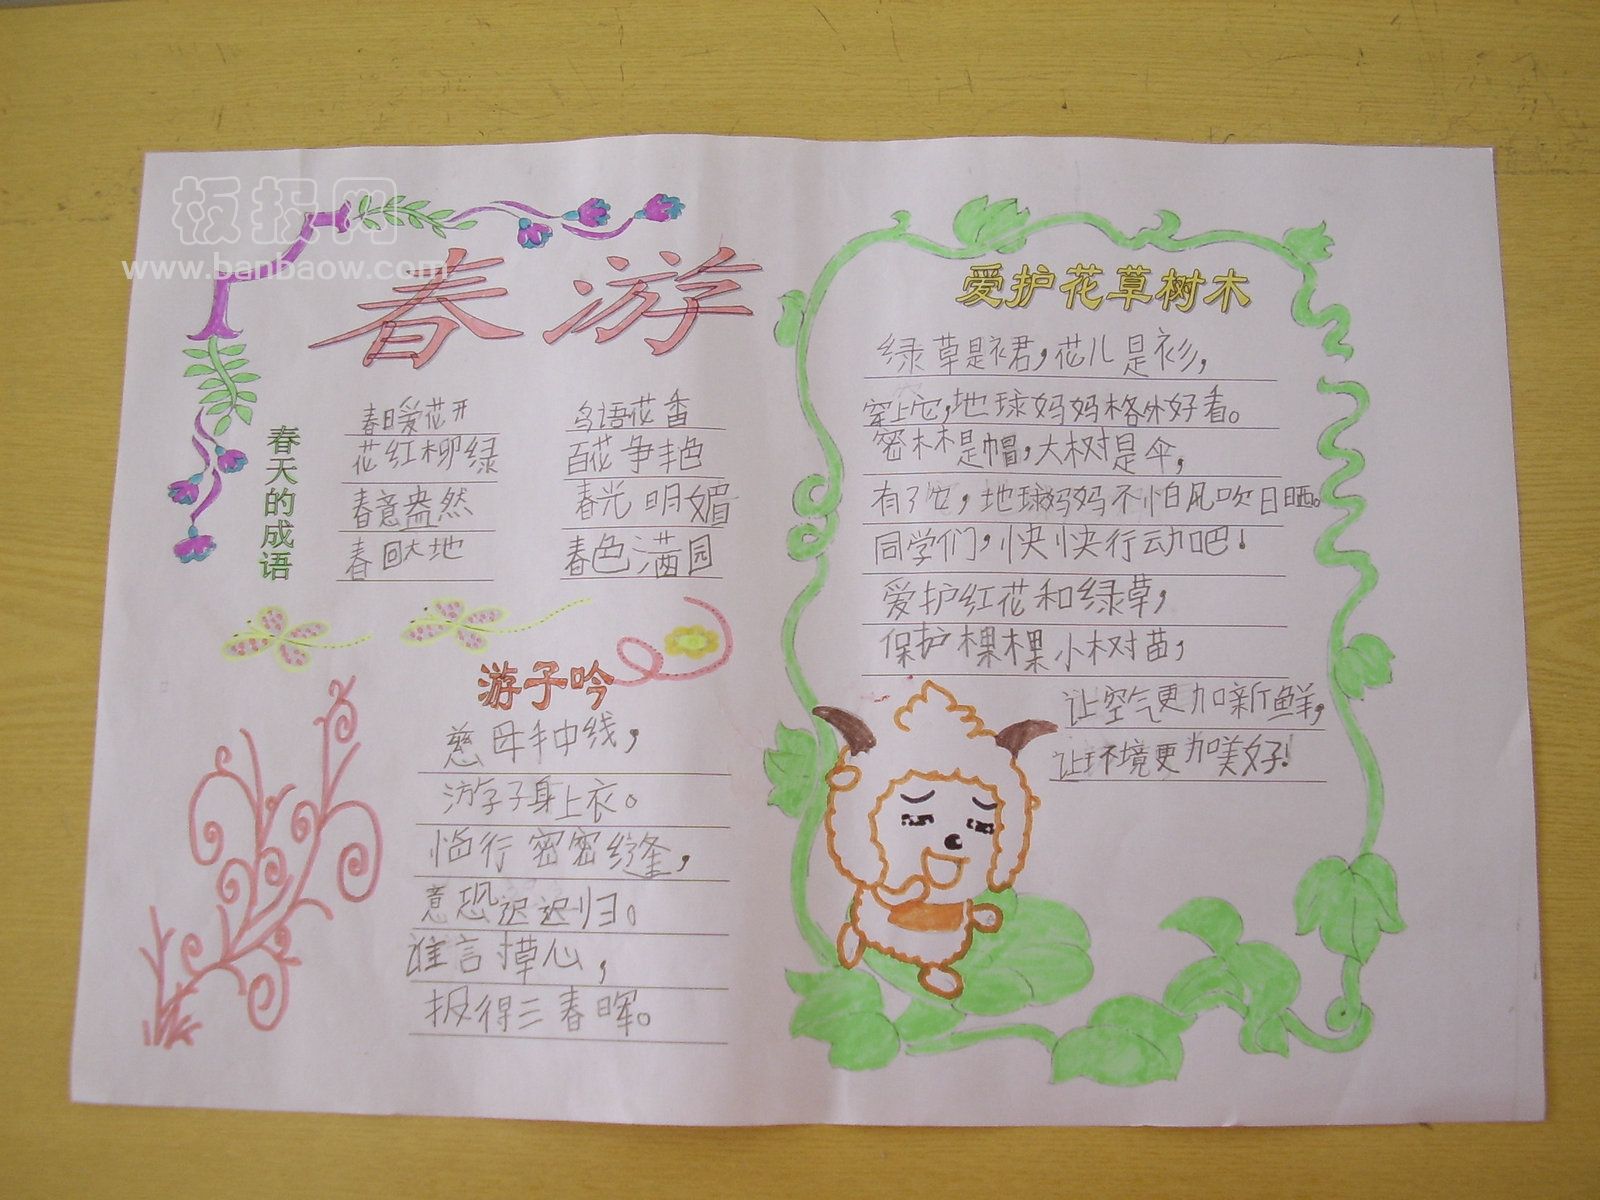 板报网
www.banbaow.com
春游
春天的成语
春日爱花开 鸟语花香
花红柳绿 百花争丰色
春意盎然 春光明媚
春回大地 春色满园
游子吟
慈母手中线，
游学子身上衣。
临行密密缝，
意恐迟迟归。
谁言寸草心，
报得三春晖。
爱护花草树木
绿草是裙，花儿是衫，
穿上它，地球妈妈格外好看。
密木是帽，大树是伞，
有了它，地球妈妈不怕风吹日晒。
同学们，快快行动吧！
爱护红花和绿草，
保护棵棵小树苗，
让空气更加新鲜，
让环境更加美好！